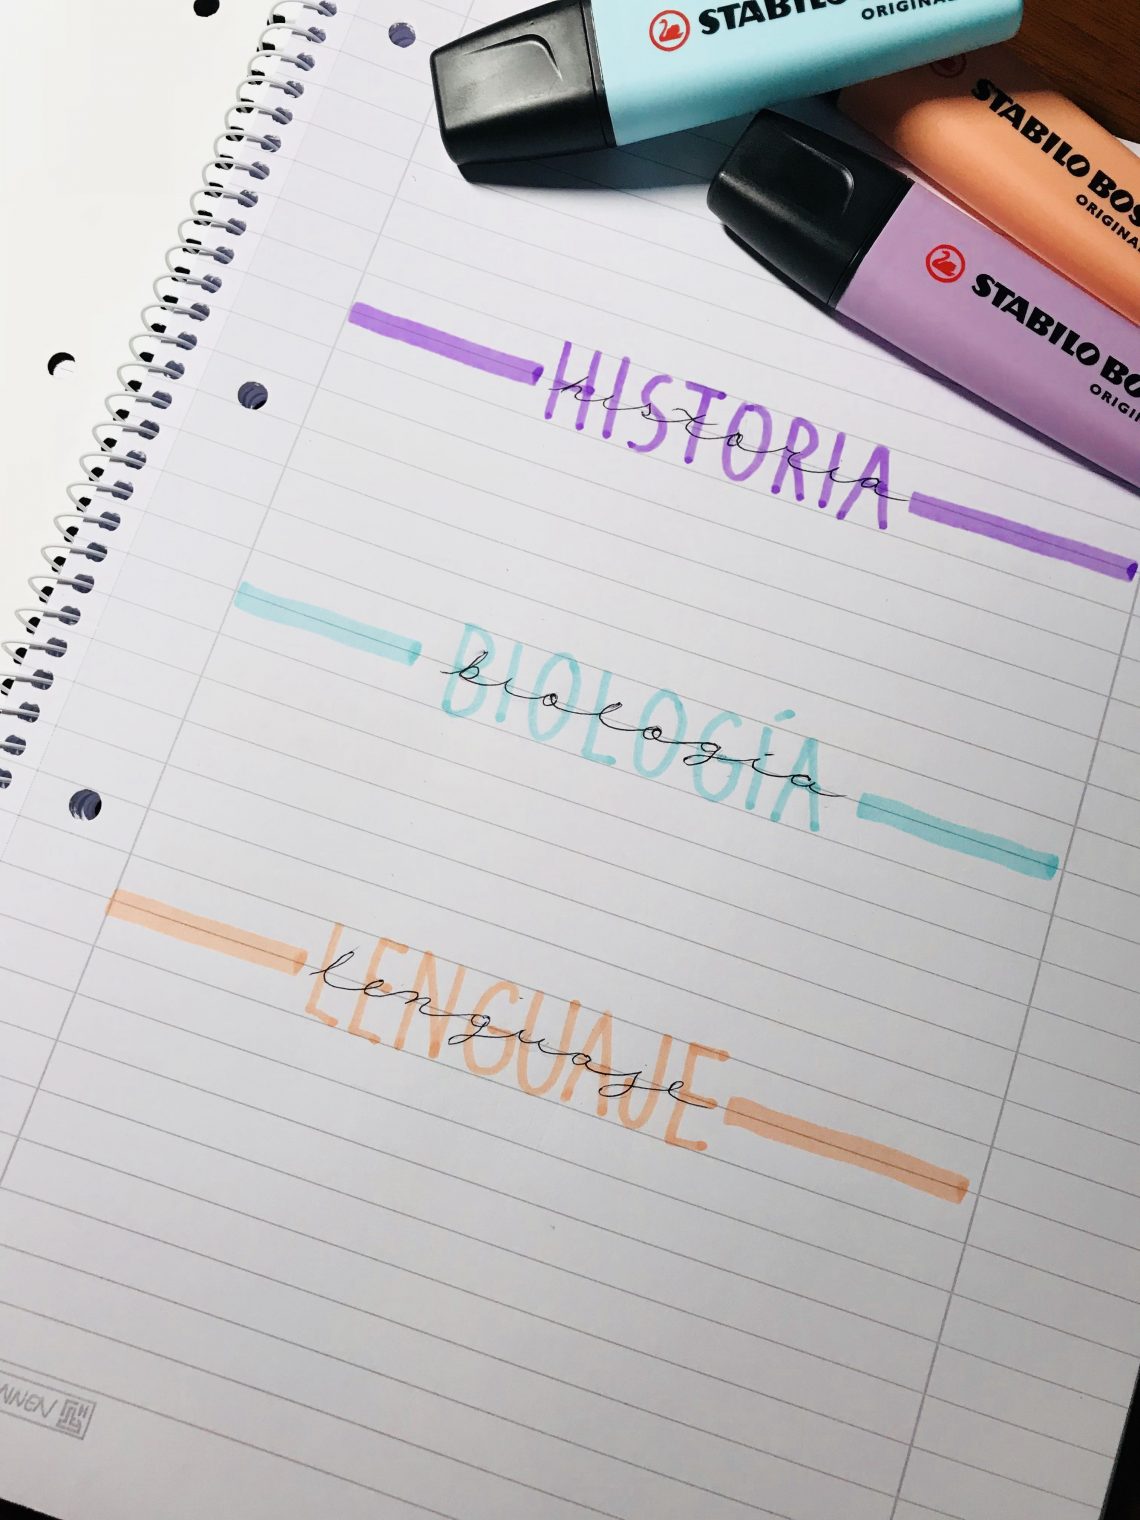 STABILO
ORIGINAL
STABILO BOS
ORIGINA
STABILO BO
ORIGIN
HISTORIA
historia
BIOLOGÍA
biología
LENGUAJE
lenguaje